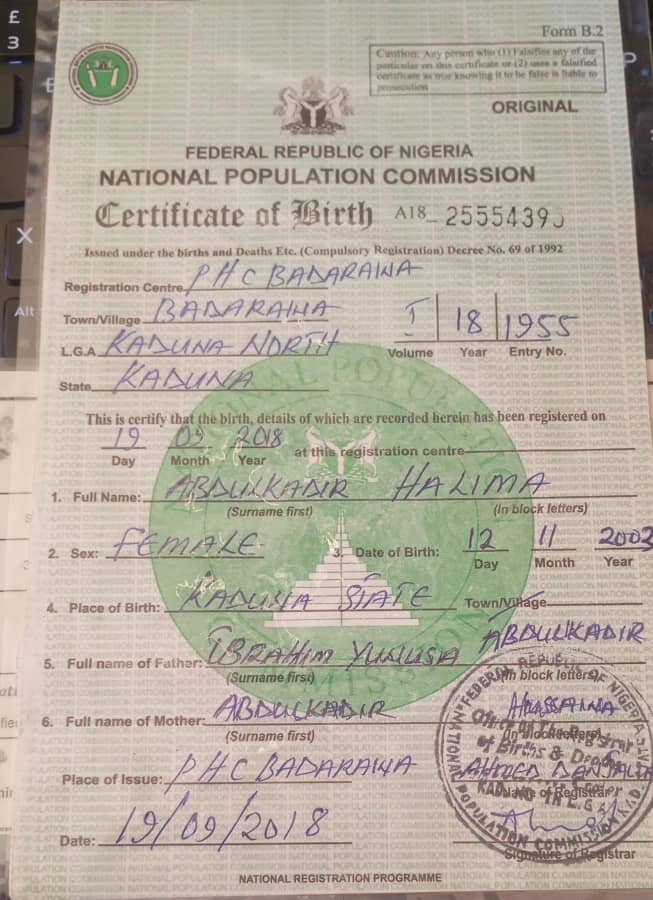 £
3
X
Alt
Form B.2
Caution: Any person who (1) Falsifies any of the
particular on this certificate or (2) uses a falsified
certificate as true knowing it to be false is liable to
prosecution
ORIGINAL
FEDERAL REPUBLIC OF NIGERIA
NATIONAL POPULATION COMMISSION
Certificate of Birth A18_ 2555439
Issued under the births and Deaths Etc. (Compulsory Registration) Decree No. 69 of 1992
Registration Centre PHC BADARAWA
Town/Village BADARAWA
I 18 1955
L.G.A KADUNA NORTH
Volume Year Entry No.
State KADUNA
This is certify that the birth, details of which are recorded herein has been registered on
19 09 2018 at this registration centre
Day Month Year
1. Full Name: ABDULKADIR HALIMA
(Surname first) (In block letters)
2. Sex: FEMALE 3. Date of Birth: 12 11 2003
Day Month Year
4. Place of Birth: KADUNA STATE Town/Village
5. Full name of Father: IBRAHIM YUNUSA ABDULKADIR
(Surname first) (In block letters)
6. Full name of Mother: ABDULKADIR HASSANA
(Surname first) (In block letters)
Place of Issue: PHC BADARAWA AHMED
Name of Registrar
Date: 19/09/2018
Signature of Registrar
FEDERAL REPUBLIC OF NIGERIA
NATIONAL POPULATION COMMISSION
Office of the Registrar
of Births & Deaths
NATIONAL REGISTRATION PROGRAMME